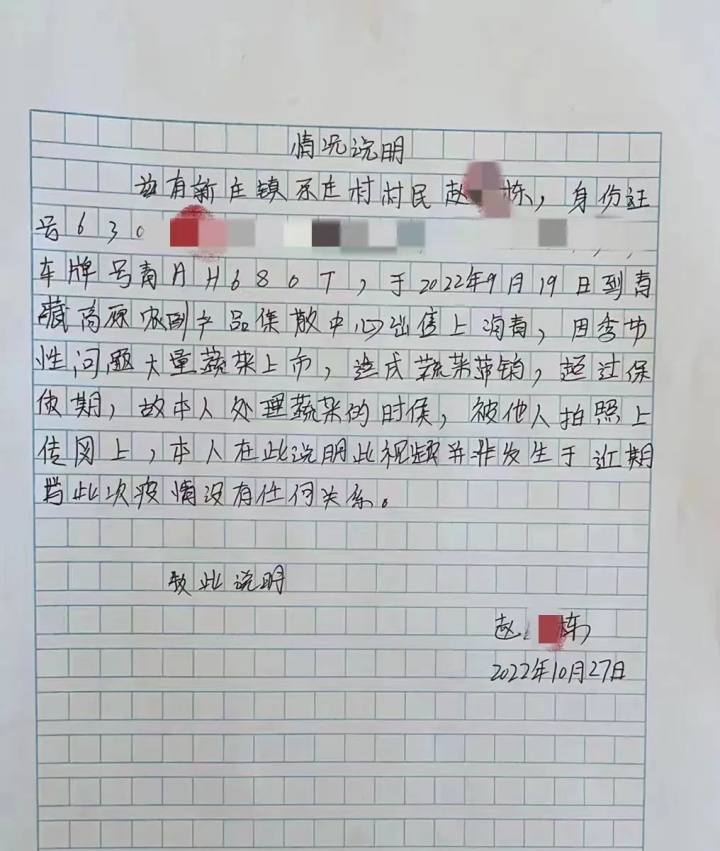 情况说明
兹有新庄镇 庄村村民赵 栋，身份证
号630
车牌号青AH680T，于2022年9月19日到青
藏高原农副产品集散中心出售上海青，因季节
性问题大量蔬菜上市，造成蔬菜滞销，超过保
质期，故本人处理蔬菜的时候，被他人拍照上
传网上，本人在此说明此视频并非发生于近期
与此次疫情没有任何关系。
致此说明
赵 栋
2022年10月27日